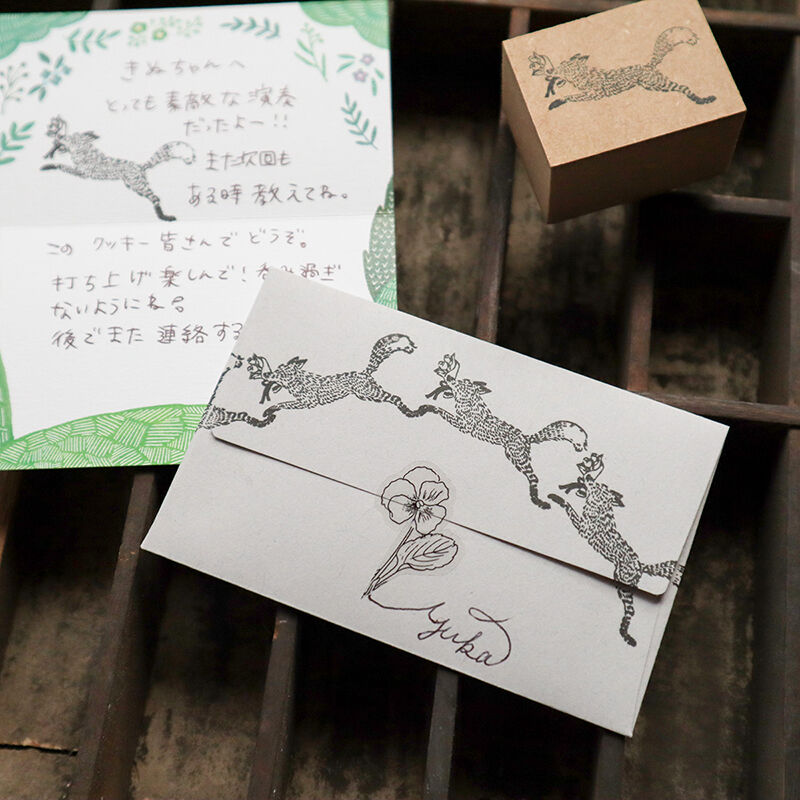 きぬちゃんへ
とっても素敵な演奏
だったよー!!
また次回も
ある時教えてね。
この クッキー皆さんで どうぞ。
打ち上げ楽しんで! 呑み過ぎ
ないようにね。
後でまた 連絡する
Yuka